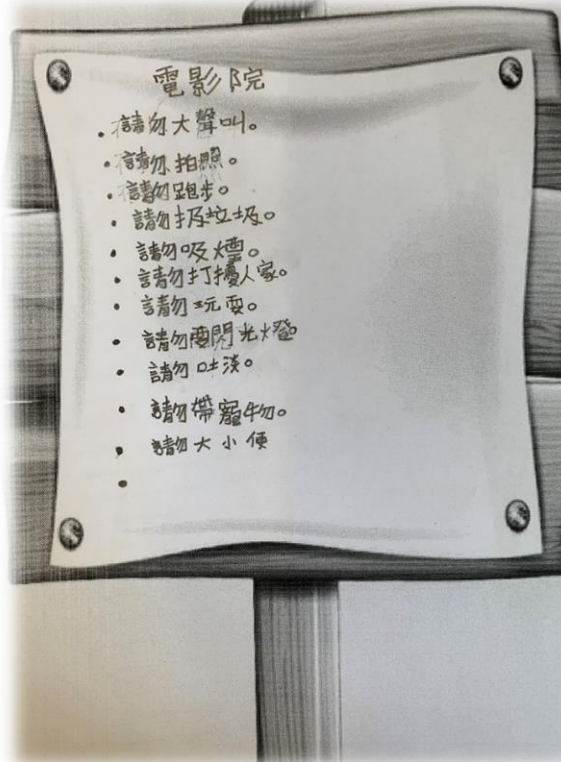 電影院
請勿大聲叫。
請勿拍照。
請勿跑步。
請勿扔垃圾。
請勿吸煙。
請勿打擾人家。
請勿玩耍。
請勿要閃光燈
請勿吐淡。
請勿帶寵物。
請勿大小便